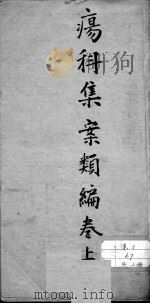 瘍科集案類編卷上
67